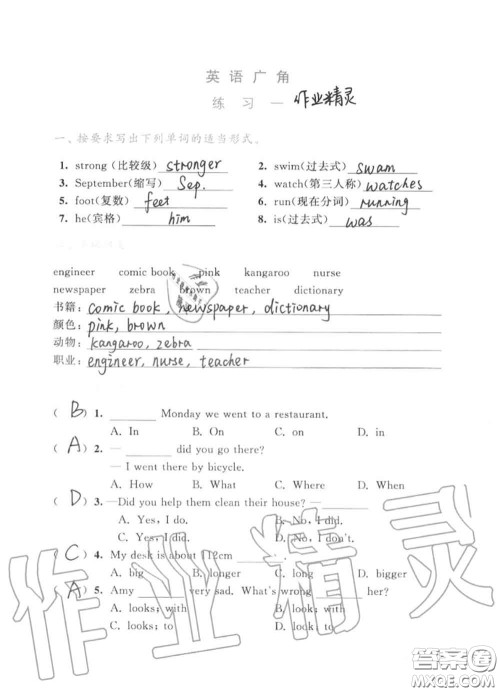 英语广角
练习一 作业精灵
一、按要求写出下列单词的适当形式。
1. strong(比较级) stronger 2. swim(过去式) swam
3. September(缩写) Sep. 4. watch(第三人称) watches
5. foot(复数) feet 6. run(现在分词) running
7. he(宾格) him 8. is(过去式) was
engineer comic book pink kangaroo nurse
newspaper zebra brown teacher dictionary
书籍：comic book, newspaper, dictionary
颜色：pink, brown
动物：kangaroo, zebra
职业：engineer, nurse, teacher
( B ) 1. ______ Monday we went to a restaurant.
A. In B. On C. on D. in
( A ) 2. — ______ did you go there?
— I went there by bicycle.
A. How B. What C. Where D. When
( D ) 3. —Did you help them clean their house? — ______
A. Yes, I do. B. No, I did.
C. Yes, I am. D. No, I don't.
( C ) 4. My desk is about 112cm ______.
A. big B. longer C. long D. bigger
( A ) 5. Amy ______ very sad. What's wrong ______ her?
A. looks; with B. look; with
C. looks; to D. look; to
作业精灵
MXQE.COM